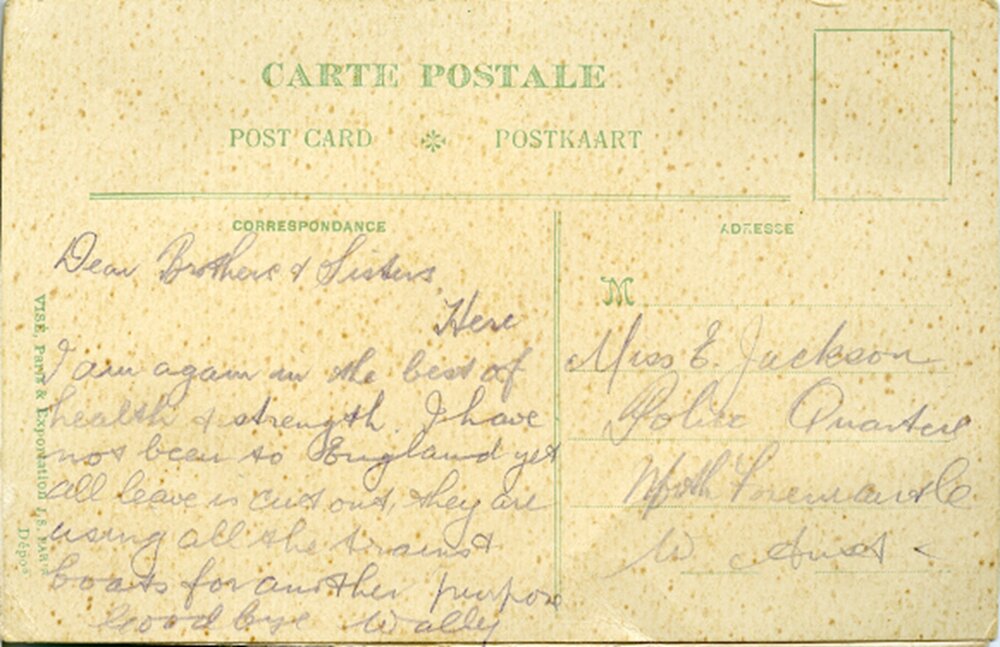 CARTE POSTALE
POST CARD POSTKAART
CORRESPONDANCE
Dear Brothers & Sisters
Here
I am again in the best of
health & strength. I have
not been to England yet
all leave is cut out, they are
using all the trains &
boats for another purpose
Good bye Wally
ADRESSE
M
Miss E. Jackson
Police Quarters
North Fremantle
W Aust
VISÉ, Paris & Exportation
Dépos